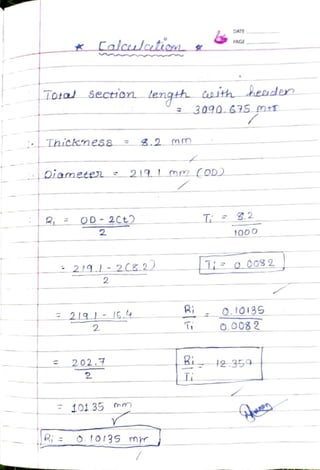 DATE
PAGE
* Calculation *
Total section length with header
= 3090.675 mtr
∴ Thickness = 8.2 mm
Diameter = 219.1 mm (OD)
Ri = OD - 2(t) / 2    Ti = 8.2 / 1000
= 219.1 - 2(8.2) / 2    Ti = 0.0082
= 219.1 - 16.4 / 2    Ri / Ti = 0.10135 / 0.0082
= 202.7 / 2    Ri / Ti = 12.359
= 101.35 mm
Ri = 0.10135 mtr